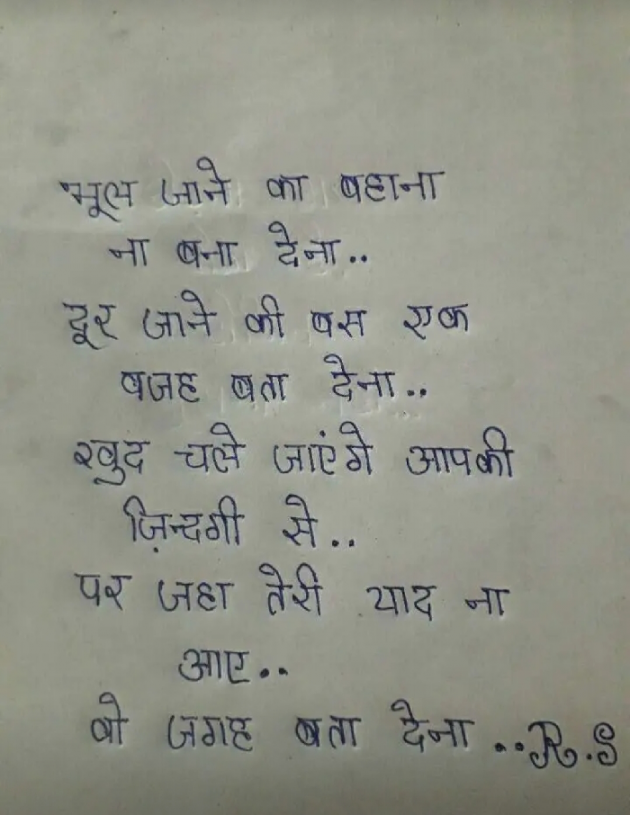 भूल जाने का बहाना
ना बना देना..
दूर जाने की बस एक
वजह बता देना..
खुद चले जाएंगे आपकी
ज़िन्दगी से..
पर जहा तेरी याद ना
आए..
वो जगह बता देना ..R.S